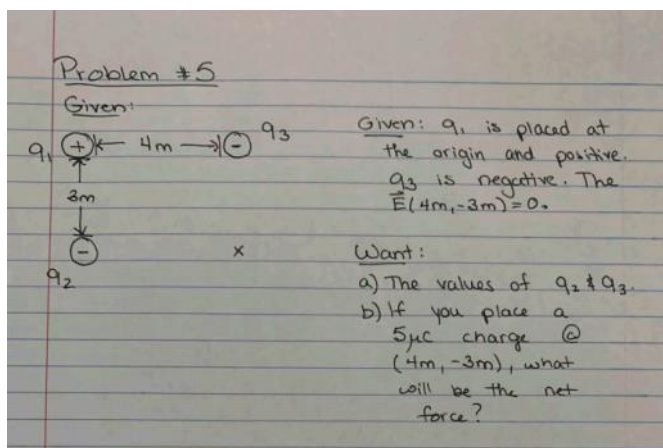 Problem #5
Given:
q₁ (+) |← 4m →| (-) q₃
3m
(-)
q₂
x
Given: q₁ is placed at
the origin and positive.
q₃ is negative. The
E⃗(4m,-3m)=0.
Want:
a) The values of q₂ & q₃.
b) If you place a
5μC charge @
(4m, -3m), what
will be the net
force?